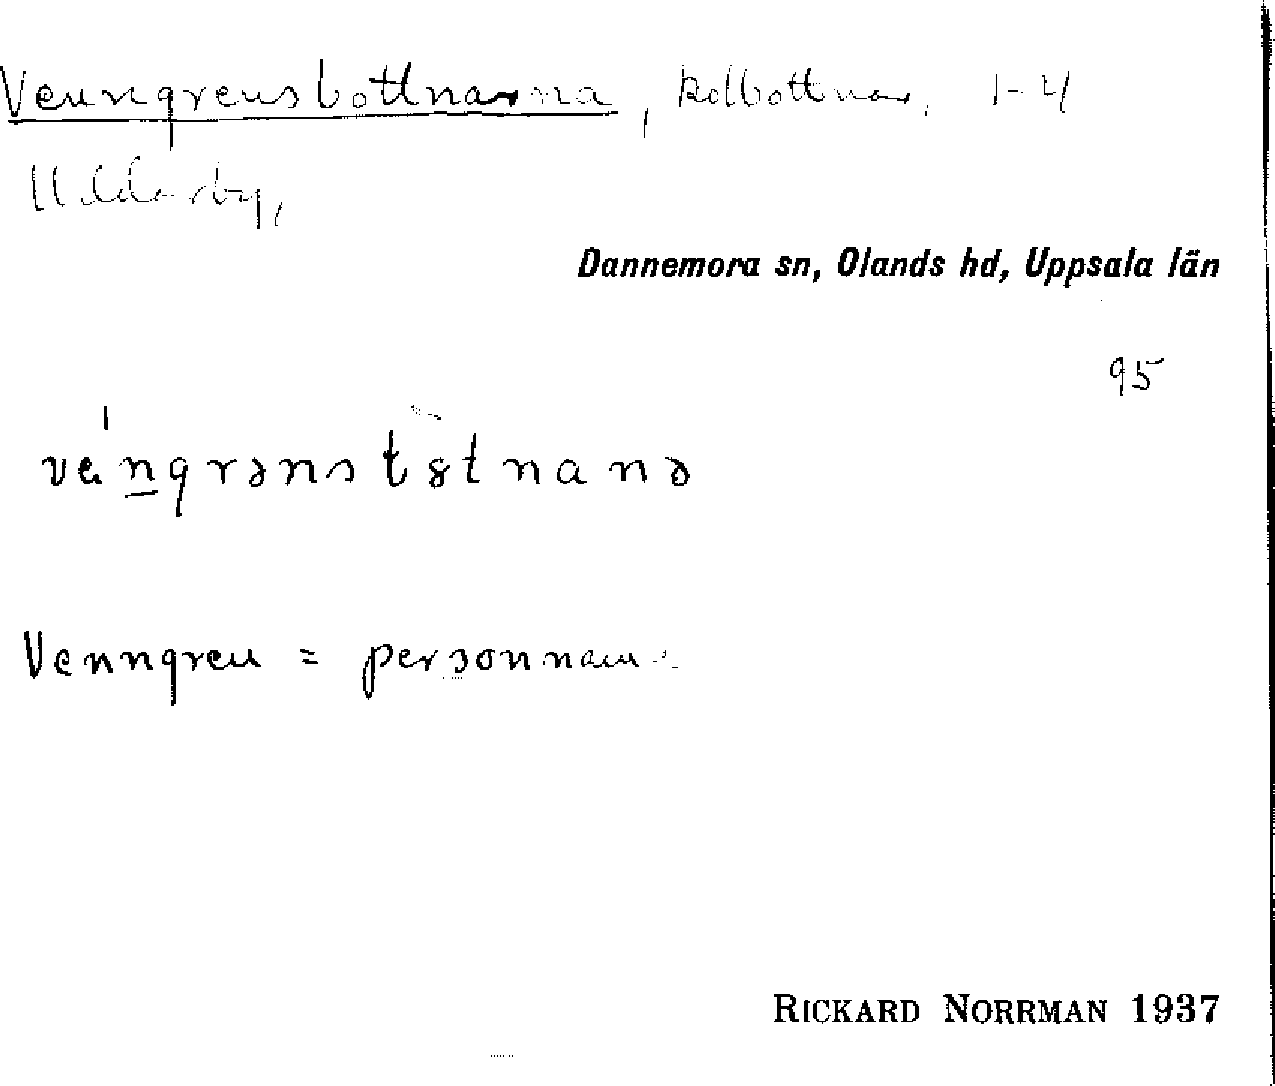 Venngrensbottnarna, kolbottnar, 1-4
Dannemora sn, Olands hd, Uppsala län
95
Venngren = personnamn
RICKARD NORRMAN 1937